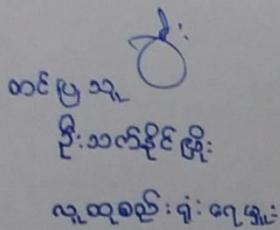 တင်ပြသူ
ဦးသက်နိုင်ဦး
လူထုစည်းရုံးရေးမှူး